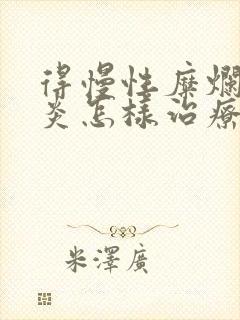 得慢性糜爛
炎怎樣治療
米澤廣